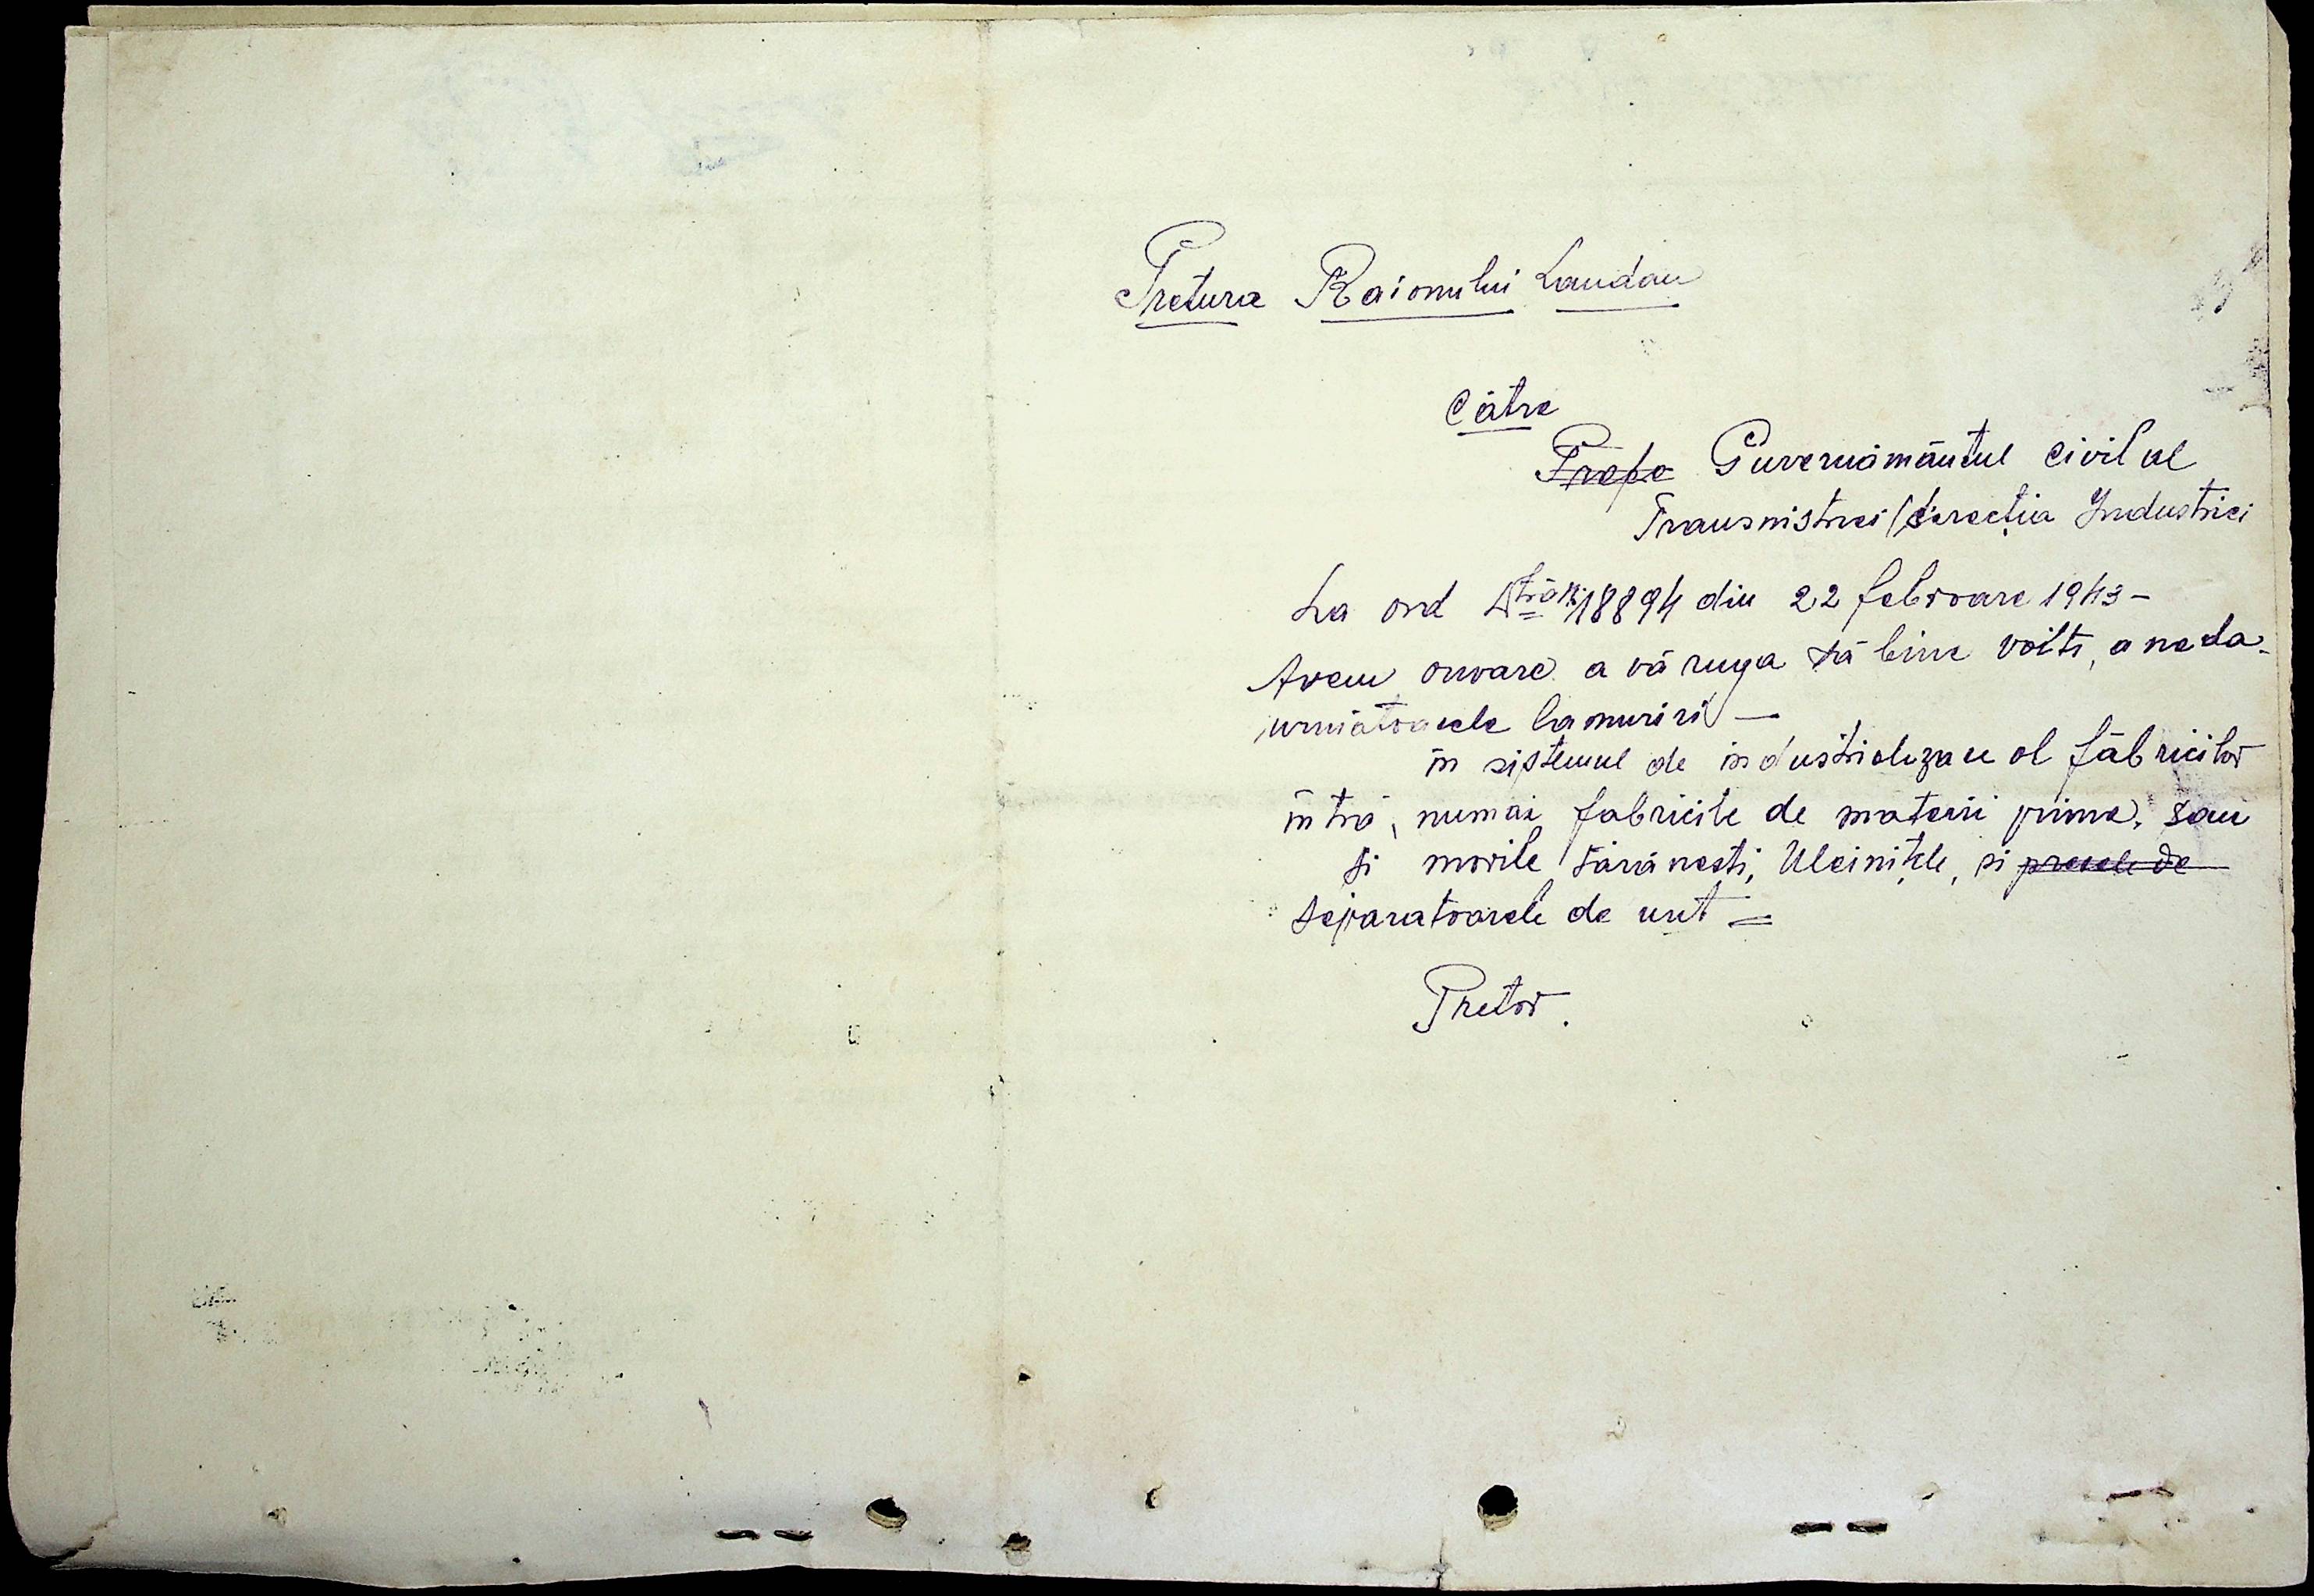 Pretura Raionului Landau
Către
Guvernământul civil al
Transnistriei / Direcția Industriei
La ord Dtră № 18894 din 22 februare 1943 –
Avem onoare a vă ruga să bine voiti, a ne da
următoarele lamuriri —
în sistemul de industrializare al fabricilor
intră, numai fabricile de materii prime, sau
si morile țărănesti, Uleinițele, si presele de
separatoarele de unt =
Pretor.